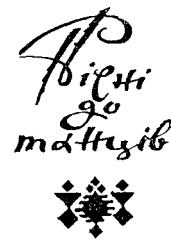 Пісні
до
танців